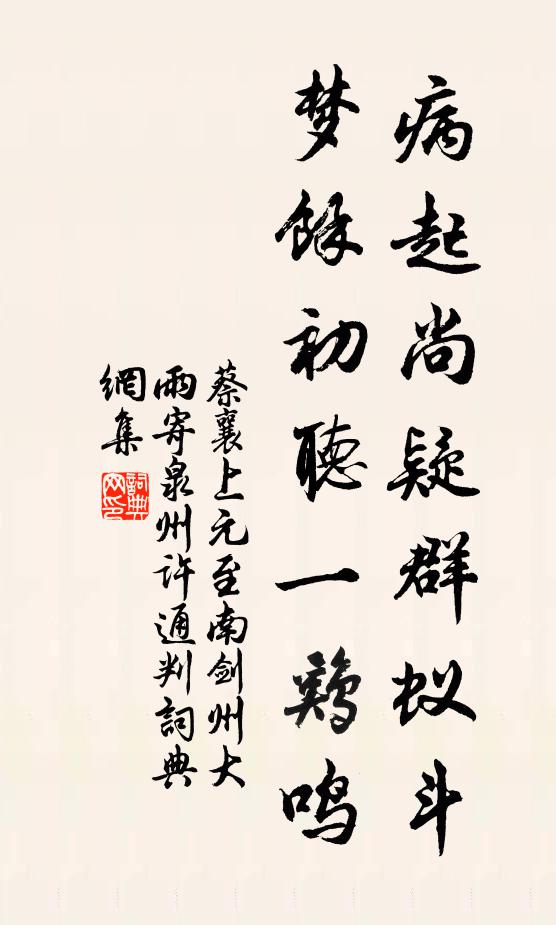 病起尚疑群蚁斗
梦餘初聽一鷄鳴
蔡襄上元至南劍州大
雨寄泉州许通判詞典
網集
詞典
网印